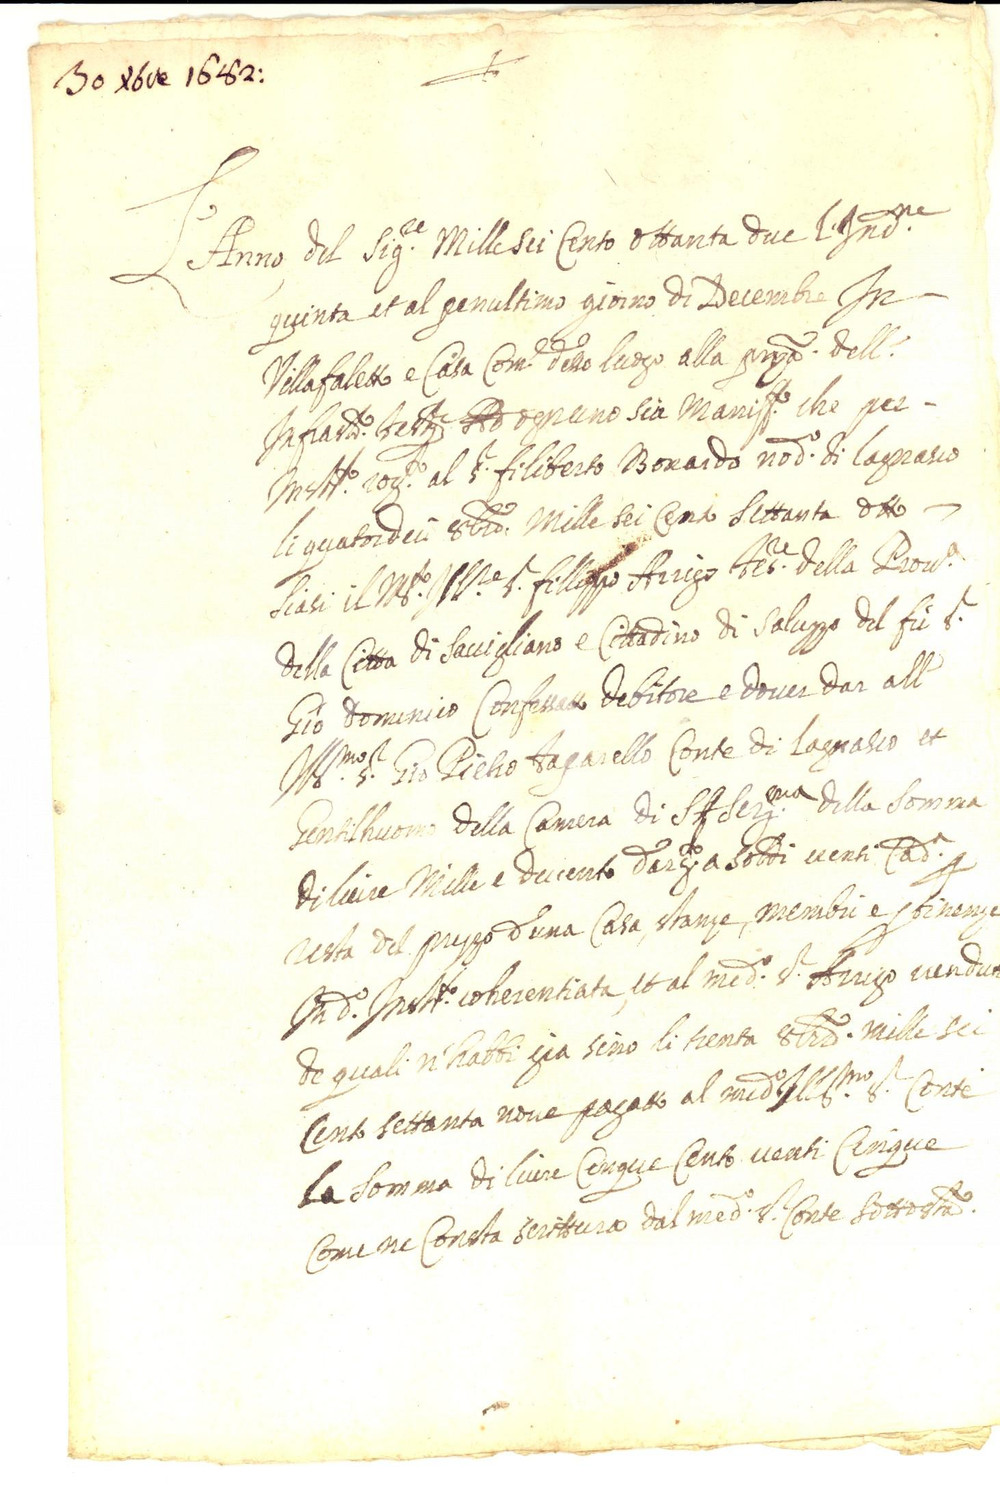 30 Xbre 1682:
L'Anno del Sig.re Mille Sei Cento ottanta due l'Ind.ne
quinta et al penultimo giorno di Decembre In
Villafaletto e Casa Com.e detto luogo alla pnza. dell.
Infrasti. testi. ad ognuno sia Maniff.o che per
Inst.o rog.o al S.r filiberto Bonardo nod.o di lagnasco
li quatordeci 8bre. Mille Sei Cento Settanta otto
Siasi il M.to Ill.re S.r filippo Arrigo tes.re della Prov.a
della Citta di Savigliano e Cittadino di Saluzzo del fu S.r
Gio Dominico Confessato debitore e dover dar all
Ill.mo S.r Gio Pietro taparello Conte di lagnasco et
Gentilhuomo della Camera di S.A. Ser.ma della Somma
di livre Mille e ducento d'arg.to a soldi venti Cad.a p
resta del prezzo d'una Casa, stanze, membri e pttinenze
In d.o Inst.o coherentiata, et al med.o S.r Arrigo vendute
de quali n'habbi gia sino li trenta 8bre. mille sei
Cento settanta nove pagato al med.o Ill.mo S.r Conte
la Somma di livre Cinque Cento venti Cinque
Come ne Consta scrittura dal med.o S.r Conte Sottosta.